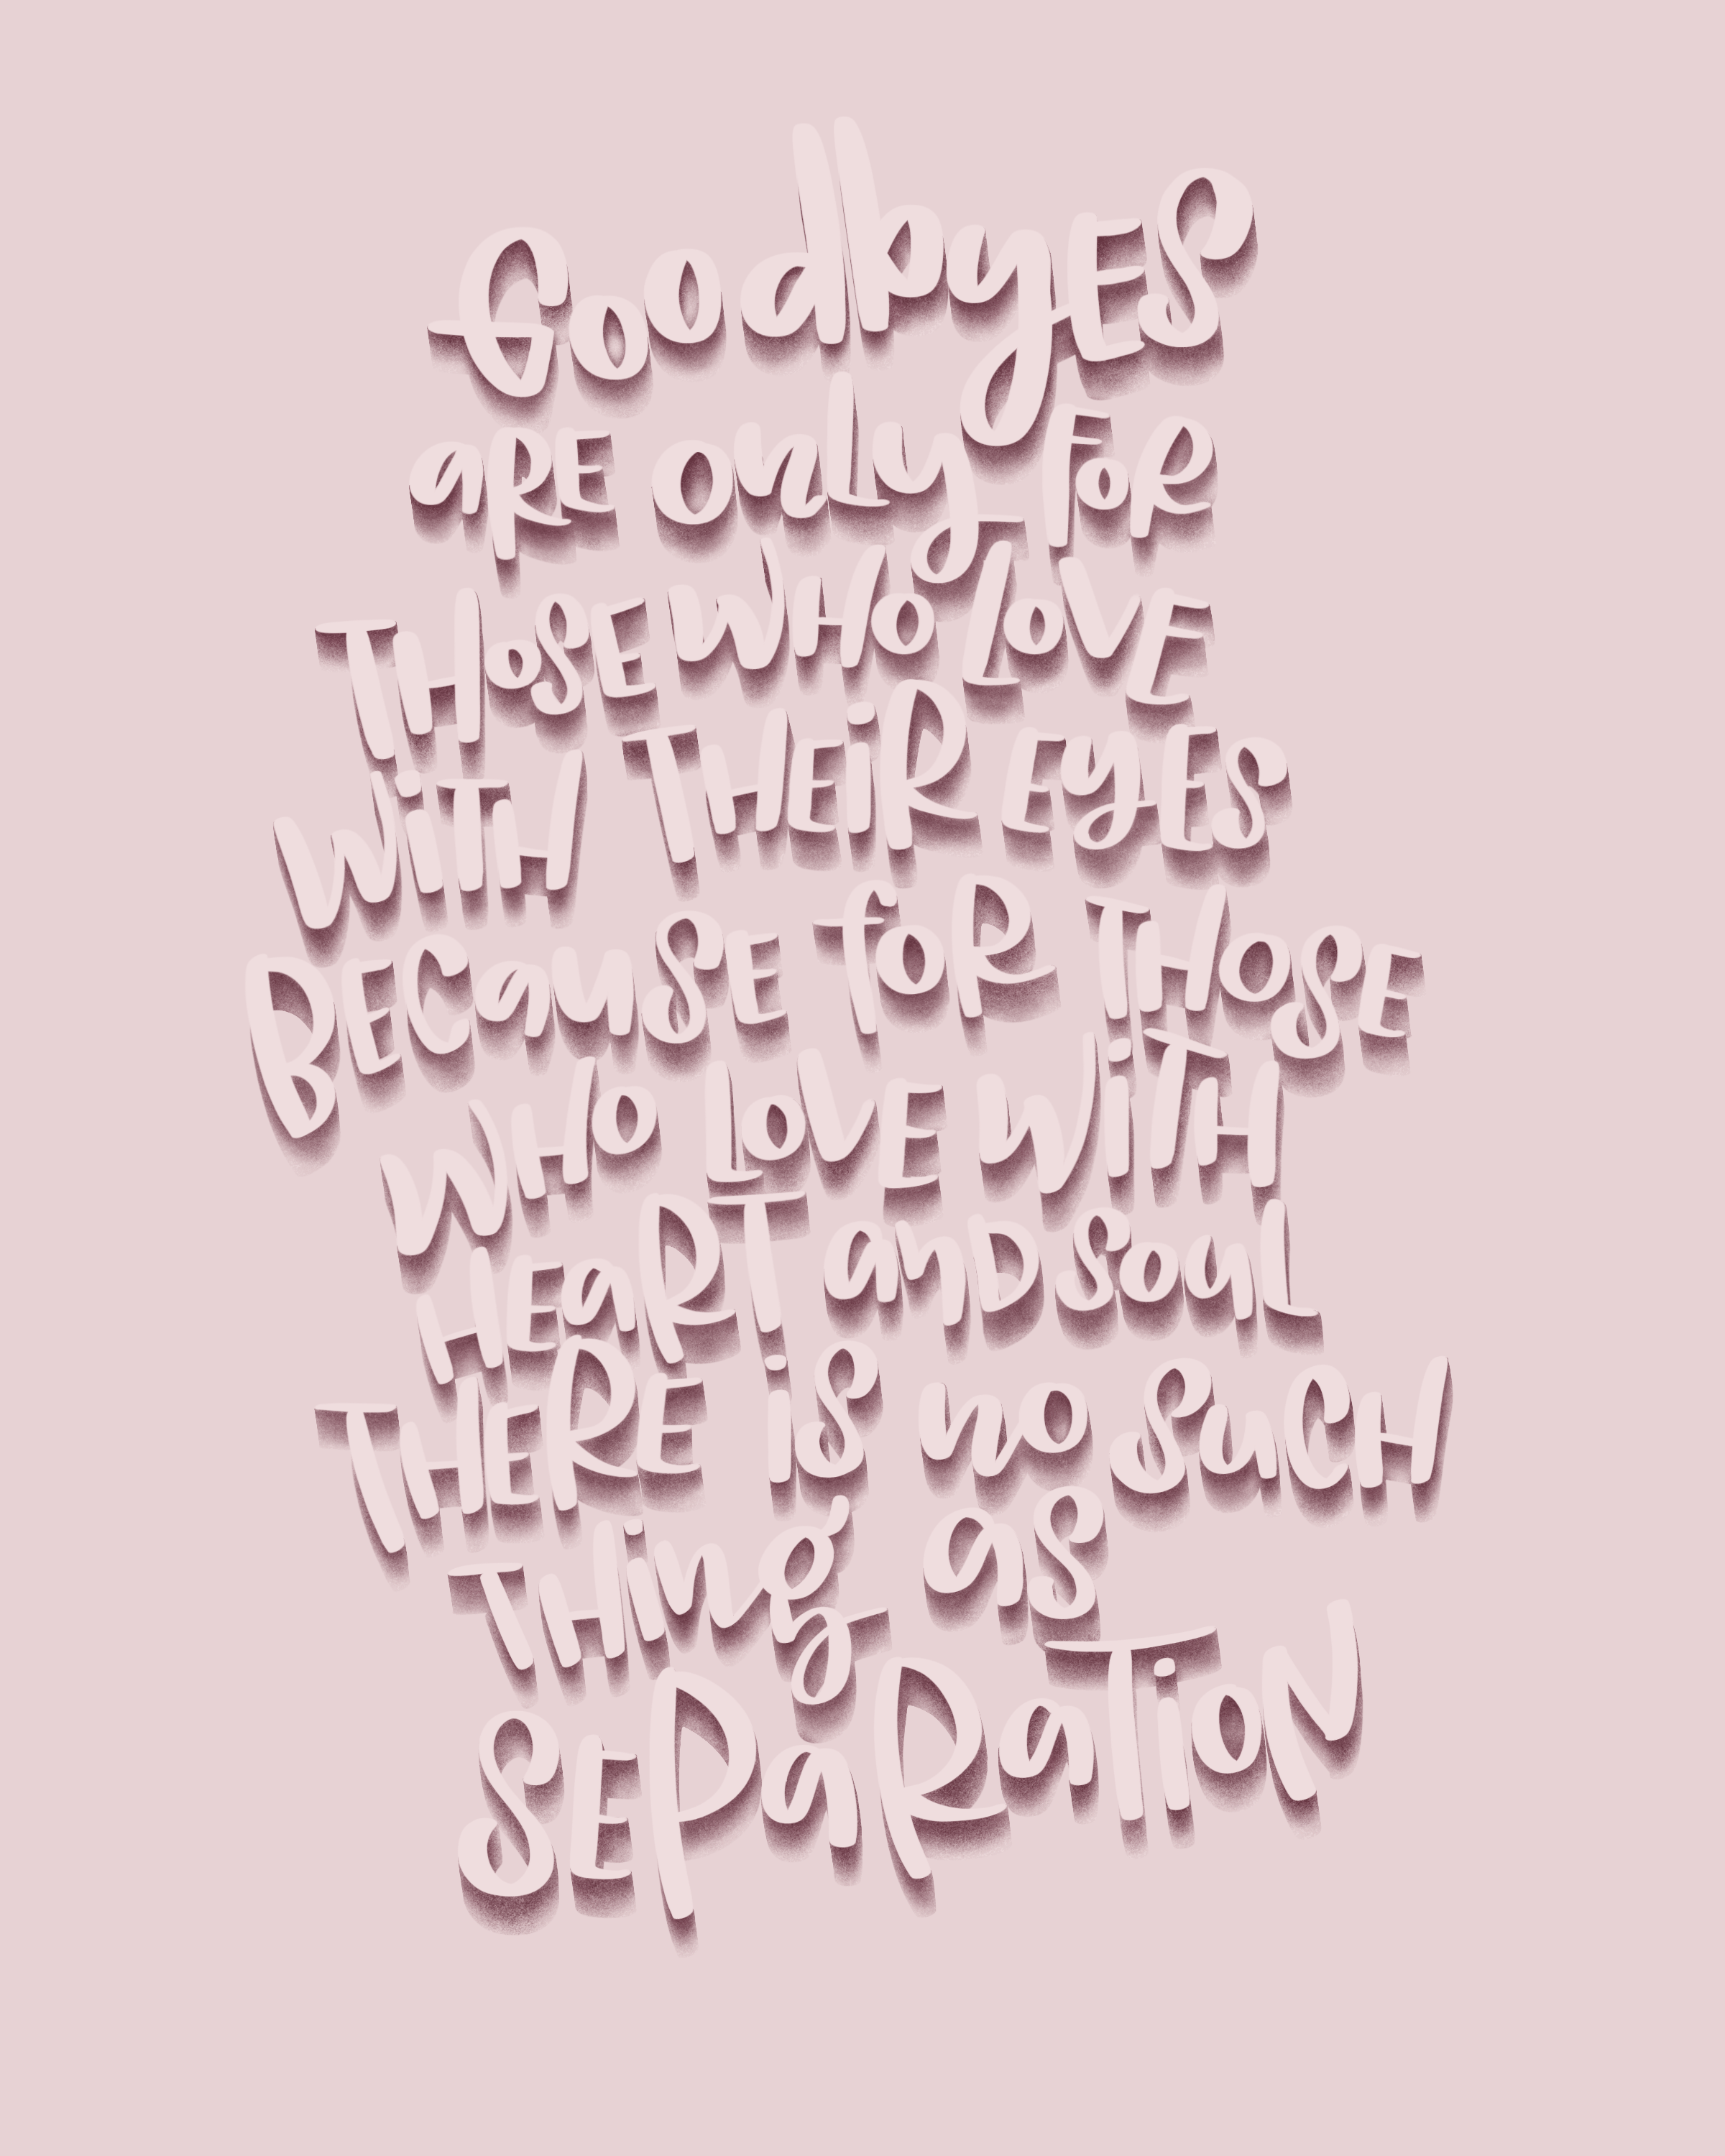 GoodbyES
aRE onLy FoR
THoSE WHo LoVE
WiTH THEiR EyES
BECauSE foR THOSE
WHo LoVE WiTH
HEaRT anD SouL
THERE iS no SuCH
THing aS
SEPaRaTioN